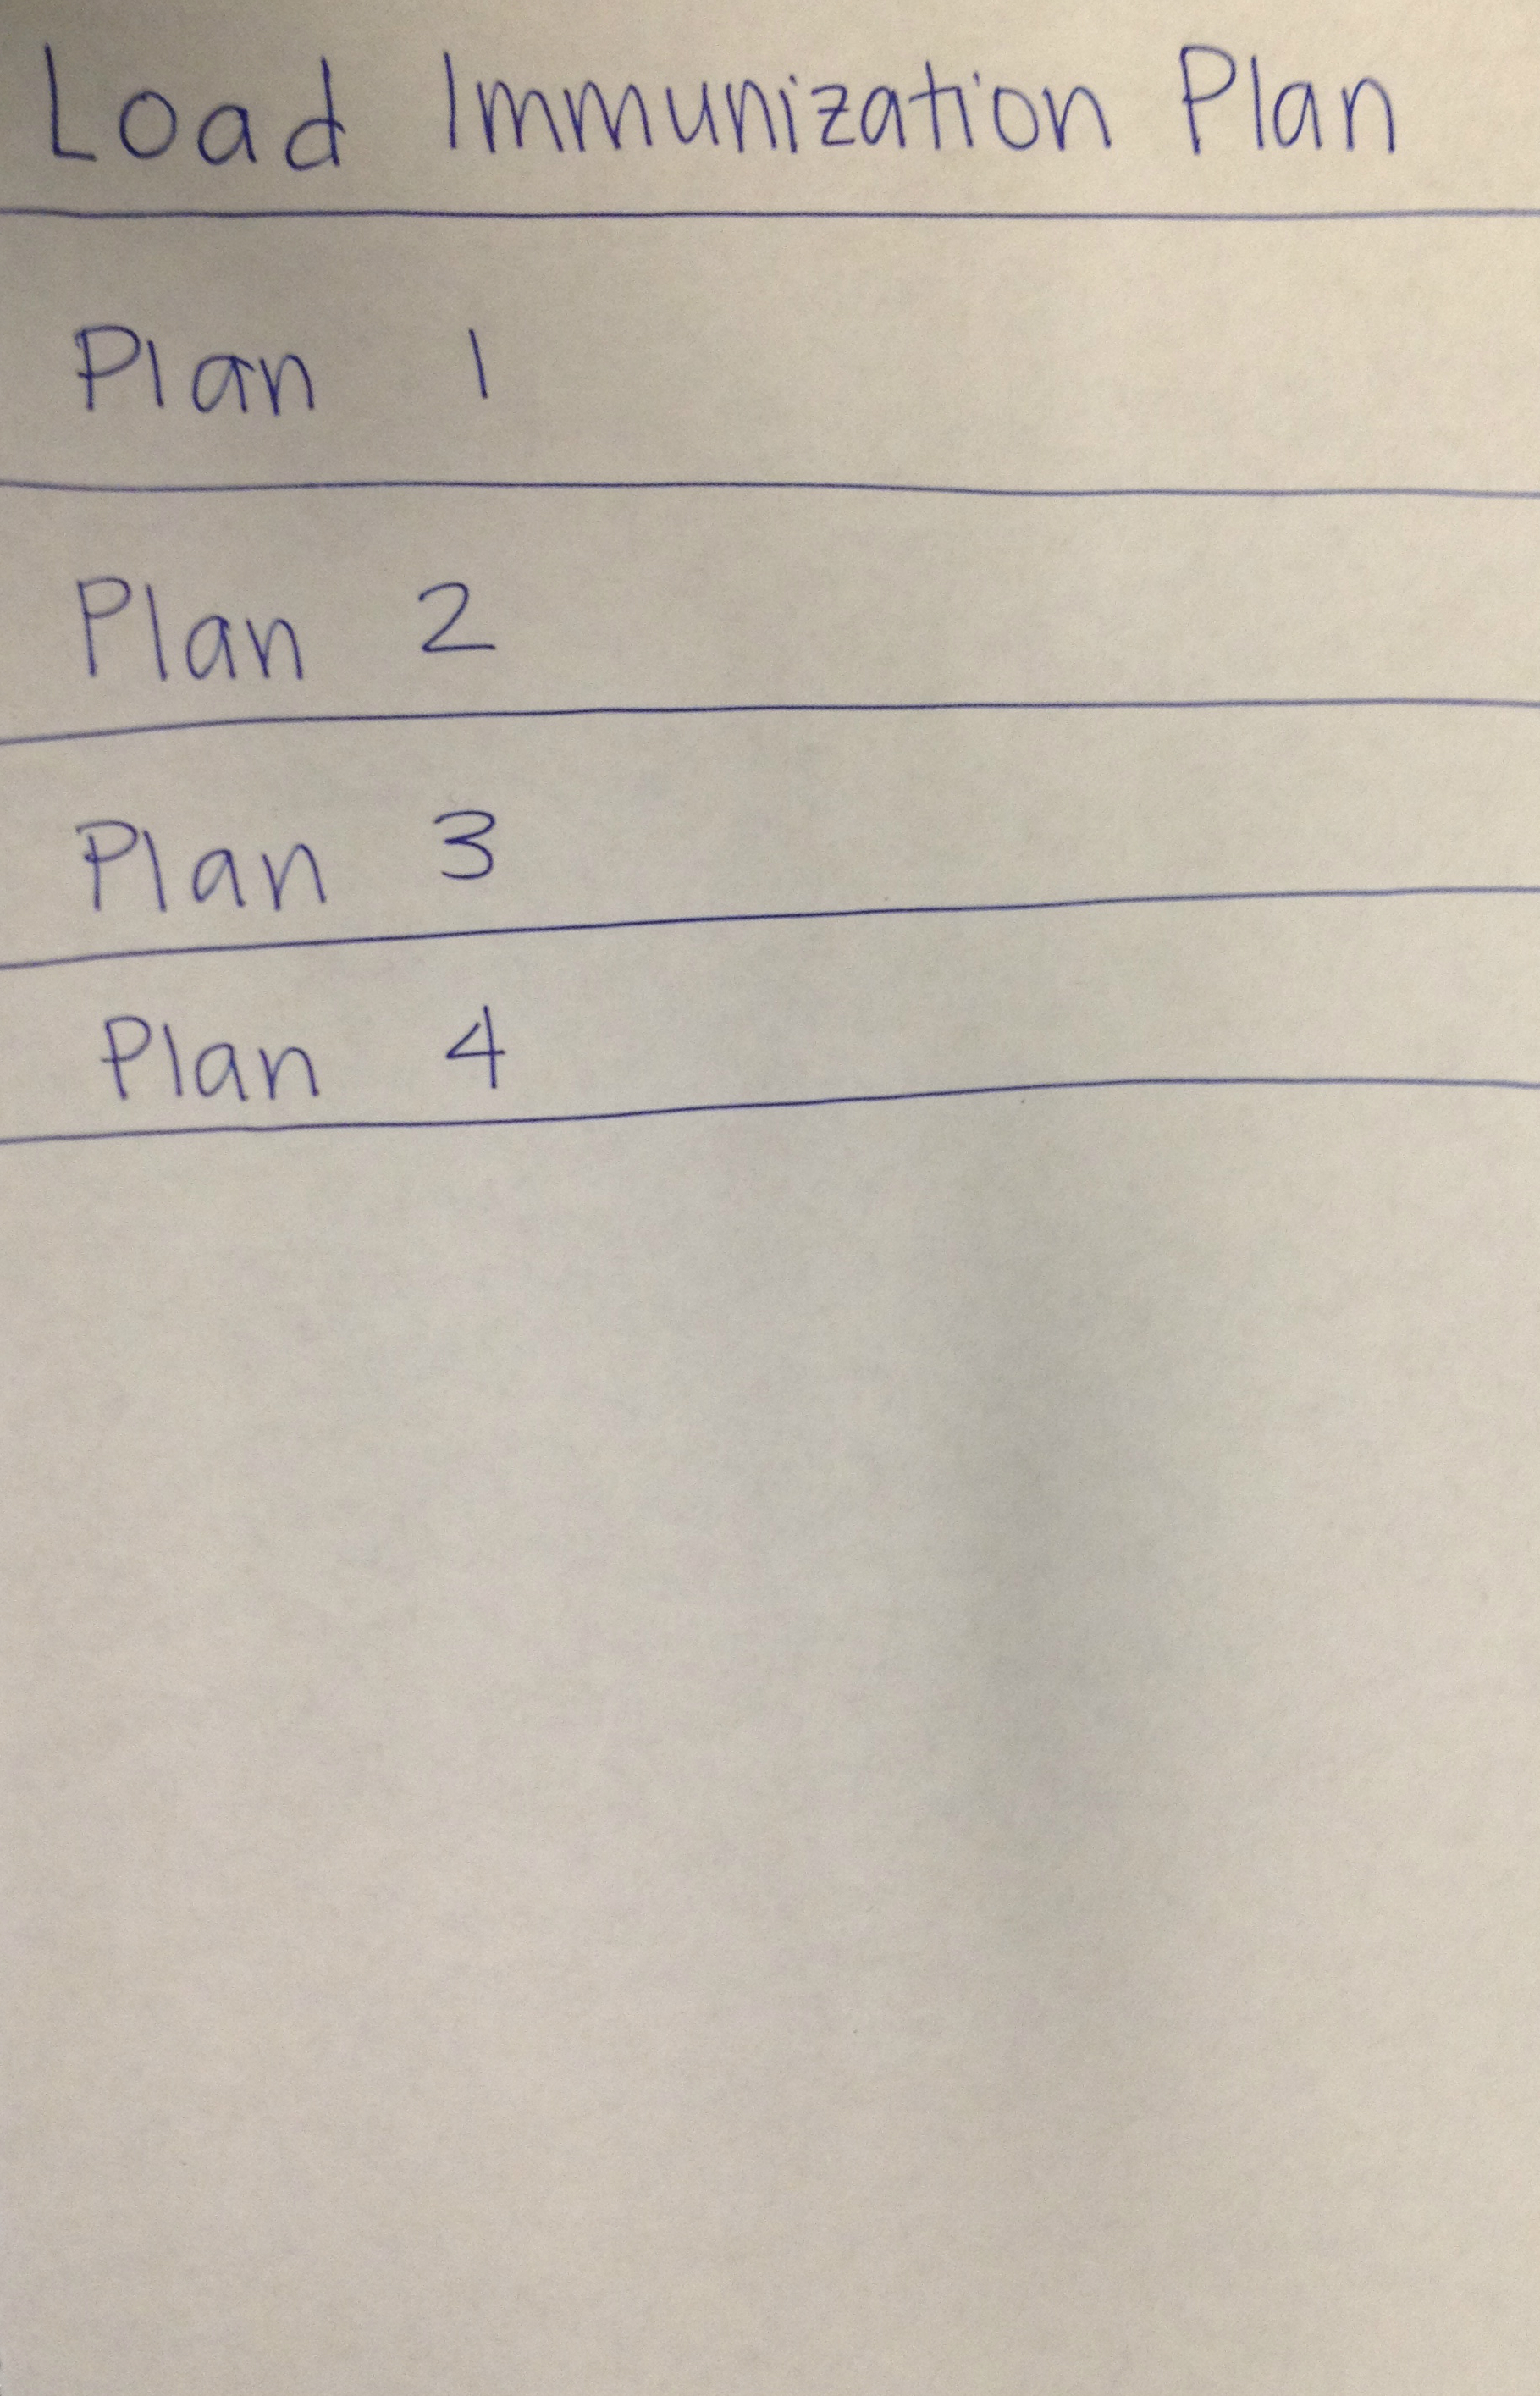 Load Immunization Plan
Plan 1
Plan 2
Plan 3
Plan 4